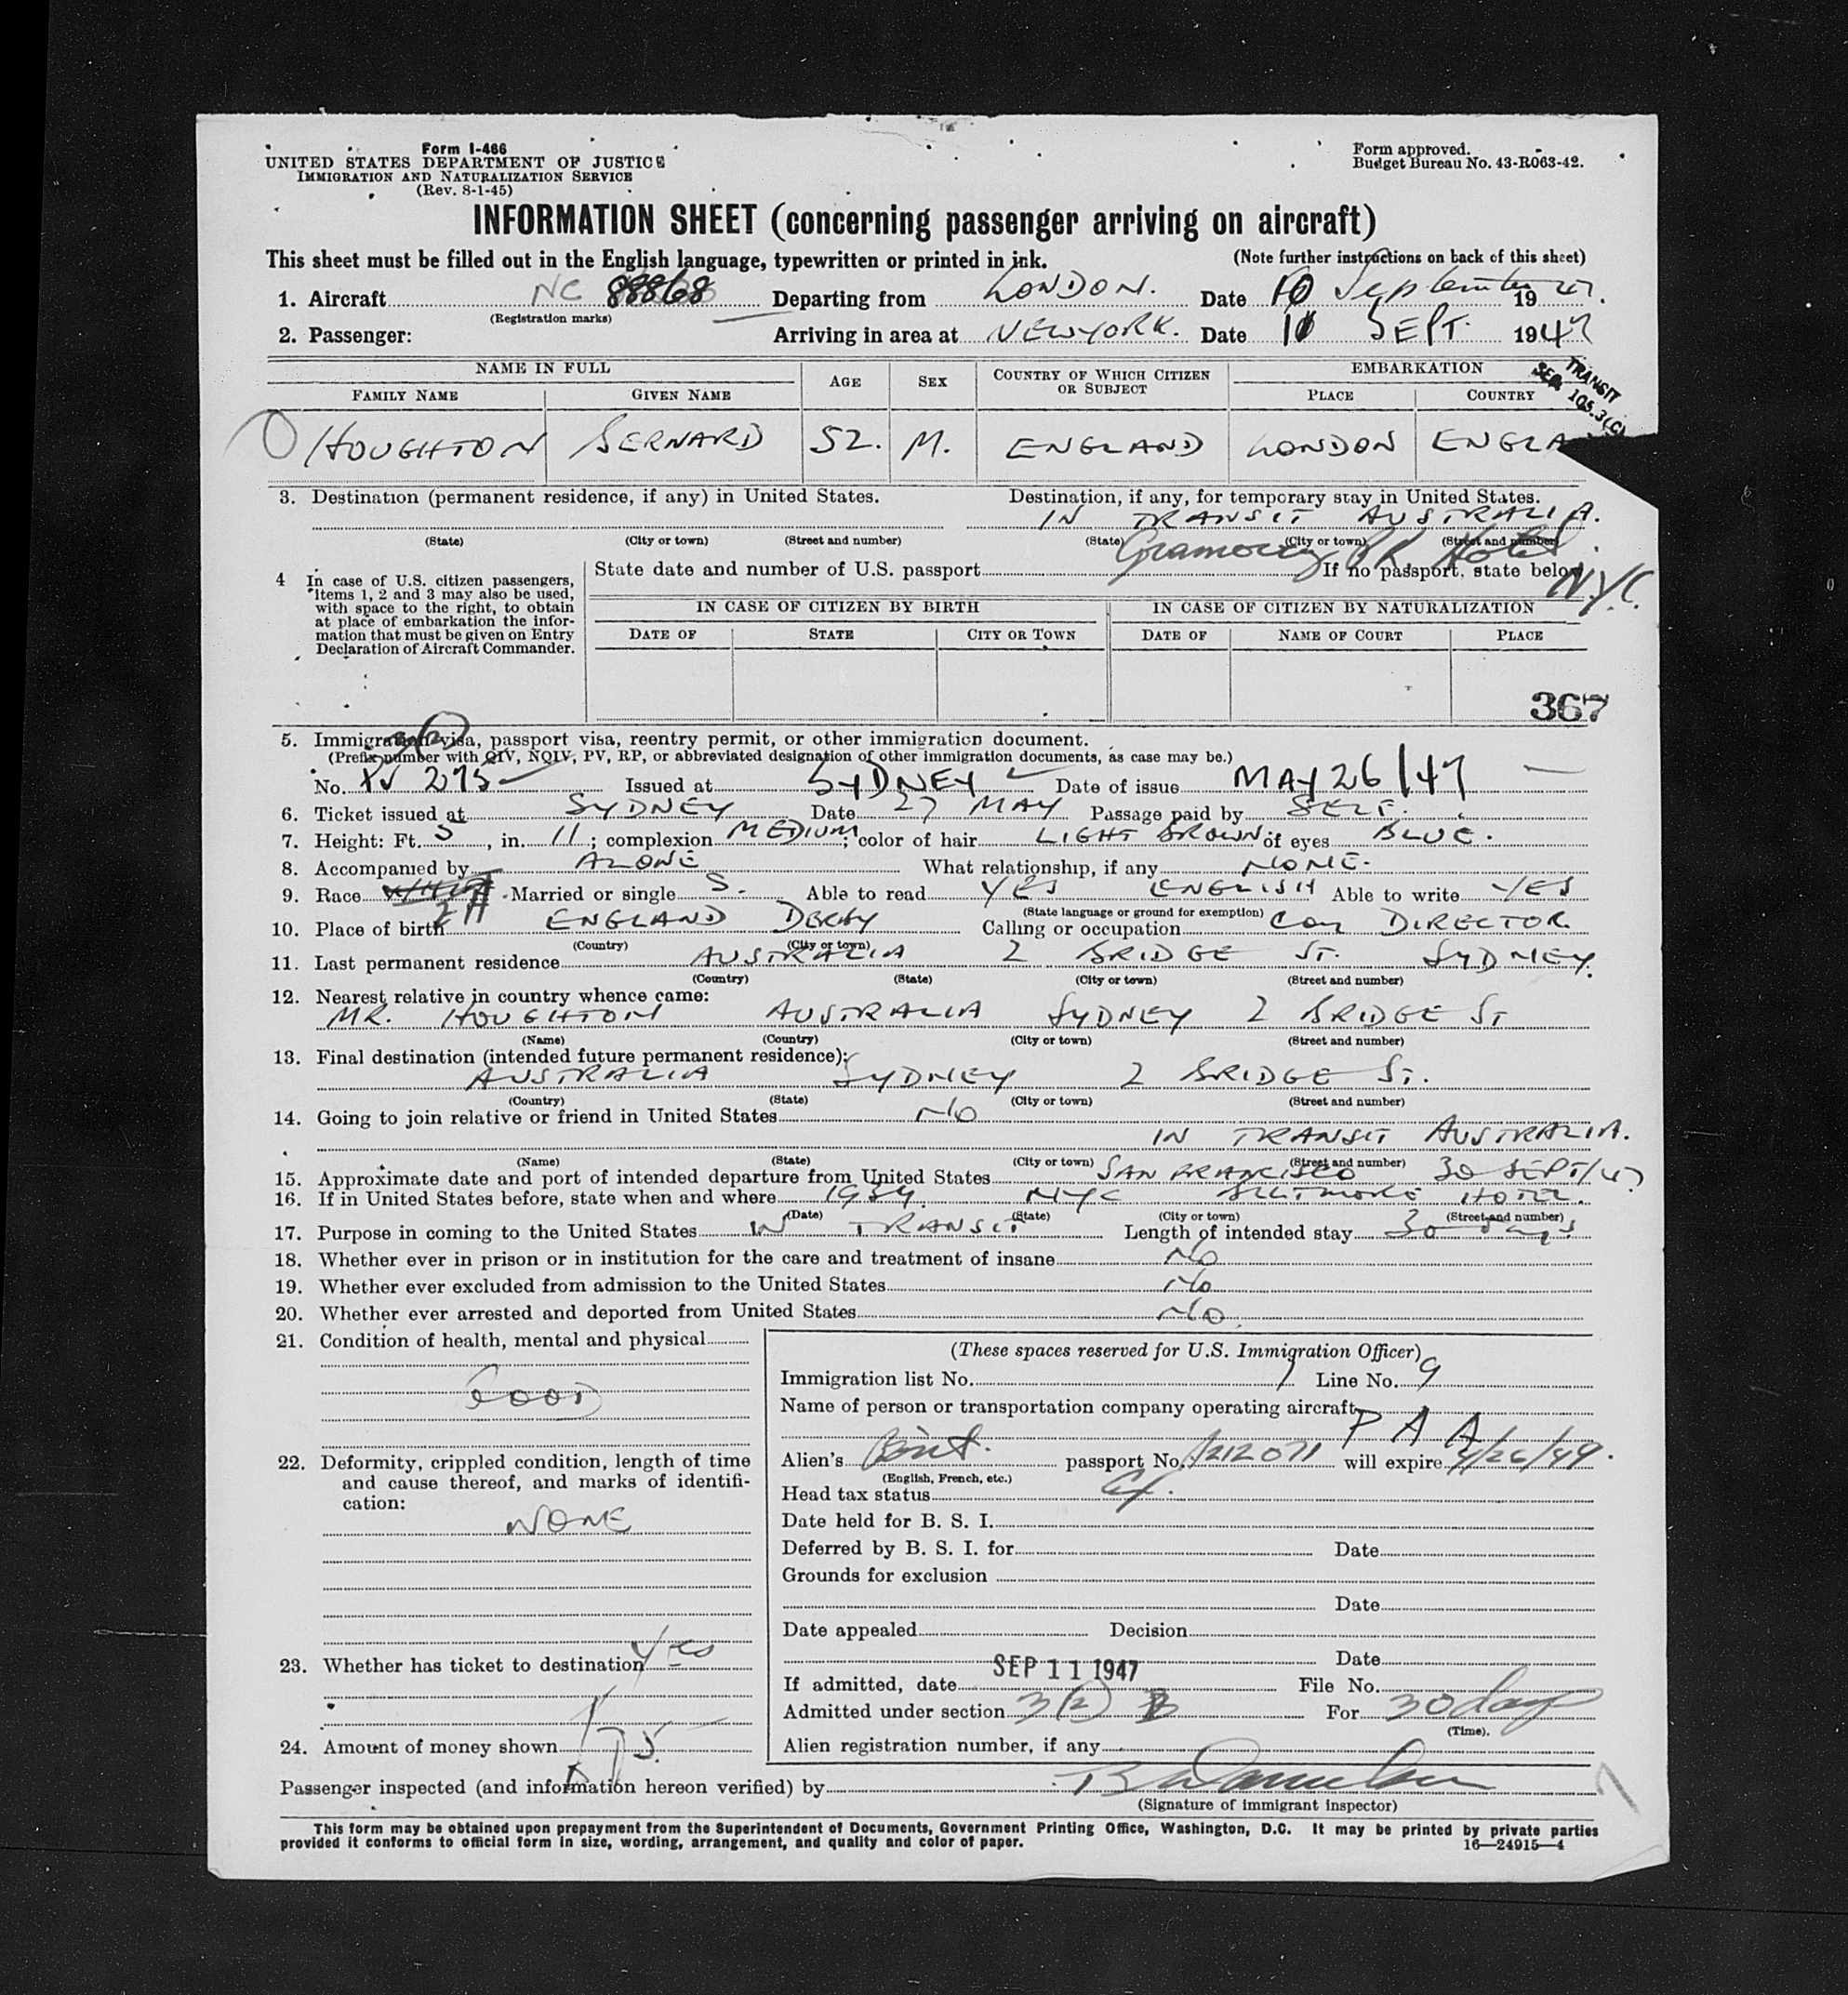 Form I-466
UNITED STATES DEPARTMENT OF JUSTICE
IMMIGRATION AND NATURALIZATION SERVICE
(Rev. 8-1-45)
Form approved.
Budget Bureau No. 43-R063-42.
INFORMATION SHEET (concerning passenger arriving on aircraft)
This sheet must be filled out in the English language, typewritten or printed in ink. (Note further instructions on back of this sheet)
1. Aircraft NC 88868 Departing from LONDON. Date 10 September 1947.
(Registration marks)
2. Passenger: Arriving in area at NEWYORK. Date 11 SEPT. 1947
TRANSIT
SEC. 105.3(C)
NAME IN FULL AGE SEX COUNTRY OF WHICH CITIZEN OR SUBJECT EMBARKATION
FAMILY NAME GIVEN NAME PLACE COUNTRY
HOUGHTON BERNARD 52. M. ENGLAND LONDON ENGLA
3. Destination (permanent residence, if any) in United States. Destination, if any, for temporary stay in United States.
IN TRANSIT AUSTRALIA.
(State) (City or town) (Street and number) (State) (City or town) (Street and number)
Gramercy PK Hotel
N.Y.C.
4 In case of U.S. citizen passengers, items 1, 2 and 3 may also be used, with space to the right, to obtain at place of embarkation the information that must be given on Entry Declaration of Aircraft Commander.
State date and number of U.S. passport If no passport, state below
IN CASE OF CITIZEN BY BIRTH IN CASE OF CITIZEN BY NATURALIZATION
DATE OF STATE CITY OR TOWN DATE OF NAME OF COURT PLACE
367
5. Immigration visa, passport visa, reentry permit, or other immigration document.
(Prefix number with QIV, NQIV, PV, RP, or abbreviated designation of other immigration documents, as case may be.)
No. 275 Issued at SYDNEY Date of issue MAY 26/47
6. Ticket issued at SYDNEY Date 27 MAY Passage paid by SELF.
7. Height: Ft. 5, in. 11; complexion MEDIUM; color of hair LIGHT BROWN of eyes BLUE.
8. Accompanied by ALONE What relationship, if any NONE.
9. Race WHITE Married or single S. Able to read YES ENGLISH Able to write YES
(State language or ground for exemption)
10. Place of birth ENGLAND DERBY Calling or occupation Coy DIRECTOR.
(Country) (City or town)
11. Last permanent residence AUSTRALIA 2 BRIDGE ST. SYDNEY.
(Country) (State) (City or town) (Street and number)
12. Nearest relative in country whence came:
MR. HOUGHTON AUSTRALIA SYDNEY 2 BRIDGE ST
(Name) (Country) (City or town) (Street and number)
13. Final destination (intended future permanent residence):
AUSTRALIA SYDNEY 2 BRIDGE ST.
(Country) (State) (City or town) (Street and number)
14. Going to join relative or friend in United States NO
IN TRANSIT AUSTRALIA.
(Name) (State) (City or town) (Street and number)
15. Approximate date and port of intended departure from United States SAN FRANCISCO 30 SEPT/47
16. If in United States before, state when and where 1939. NYC BILTMORE HOTEL.
(Date) (State) (City or town) (Street and number)
17. Purpose in coming to the United States IN TRANSIT Length of intended stay 30 days
18. Whether ever in prison or in institution for the care and treatment of insane NO
19. Whether ever excluded from admission to the United States NO
20. Whether ever arrested and deported from United States NO
21. Condition of health, mental and physical
GOOD
22. Deformity, crippled condition, length of time and cause thereof, and marks of identification:
NONE
23. Whether has ticket to destination Yes
24. Amount of money shown 75
(These spaces reserved for U.S. Immigration Officer)
Immigration list No. 1 Line No. 9
Name of person or transportation company operating aircraft
P A A
Alien's Brit. passport No. 212071 will expire 4/26/49.
(English, French, etc.)
Head tax status
Date held for B. S. I.
Deferred by B. S. I. for Date
Grounds for exclusion
Date
Date appealed Decision
Date
If admitted, date SEP 11 1947 File No.
Admitted under section 3(2) B For 30 days
(Time).
Alien registration number, if any
Passenger inspected (and information hereon verified) by
(Signature of immigrant inspector)
This form may be obtained upon prepayment from the Superintendent of Documents, Government Printing Office, Washington, D.C. It may be printed by private parties
provided it conforms to official form in size, wording, arrangement, and quality and color of paper. 16—24915-4